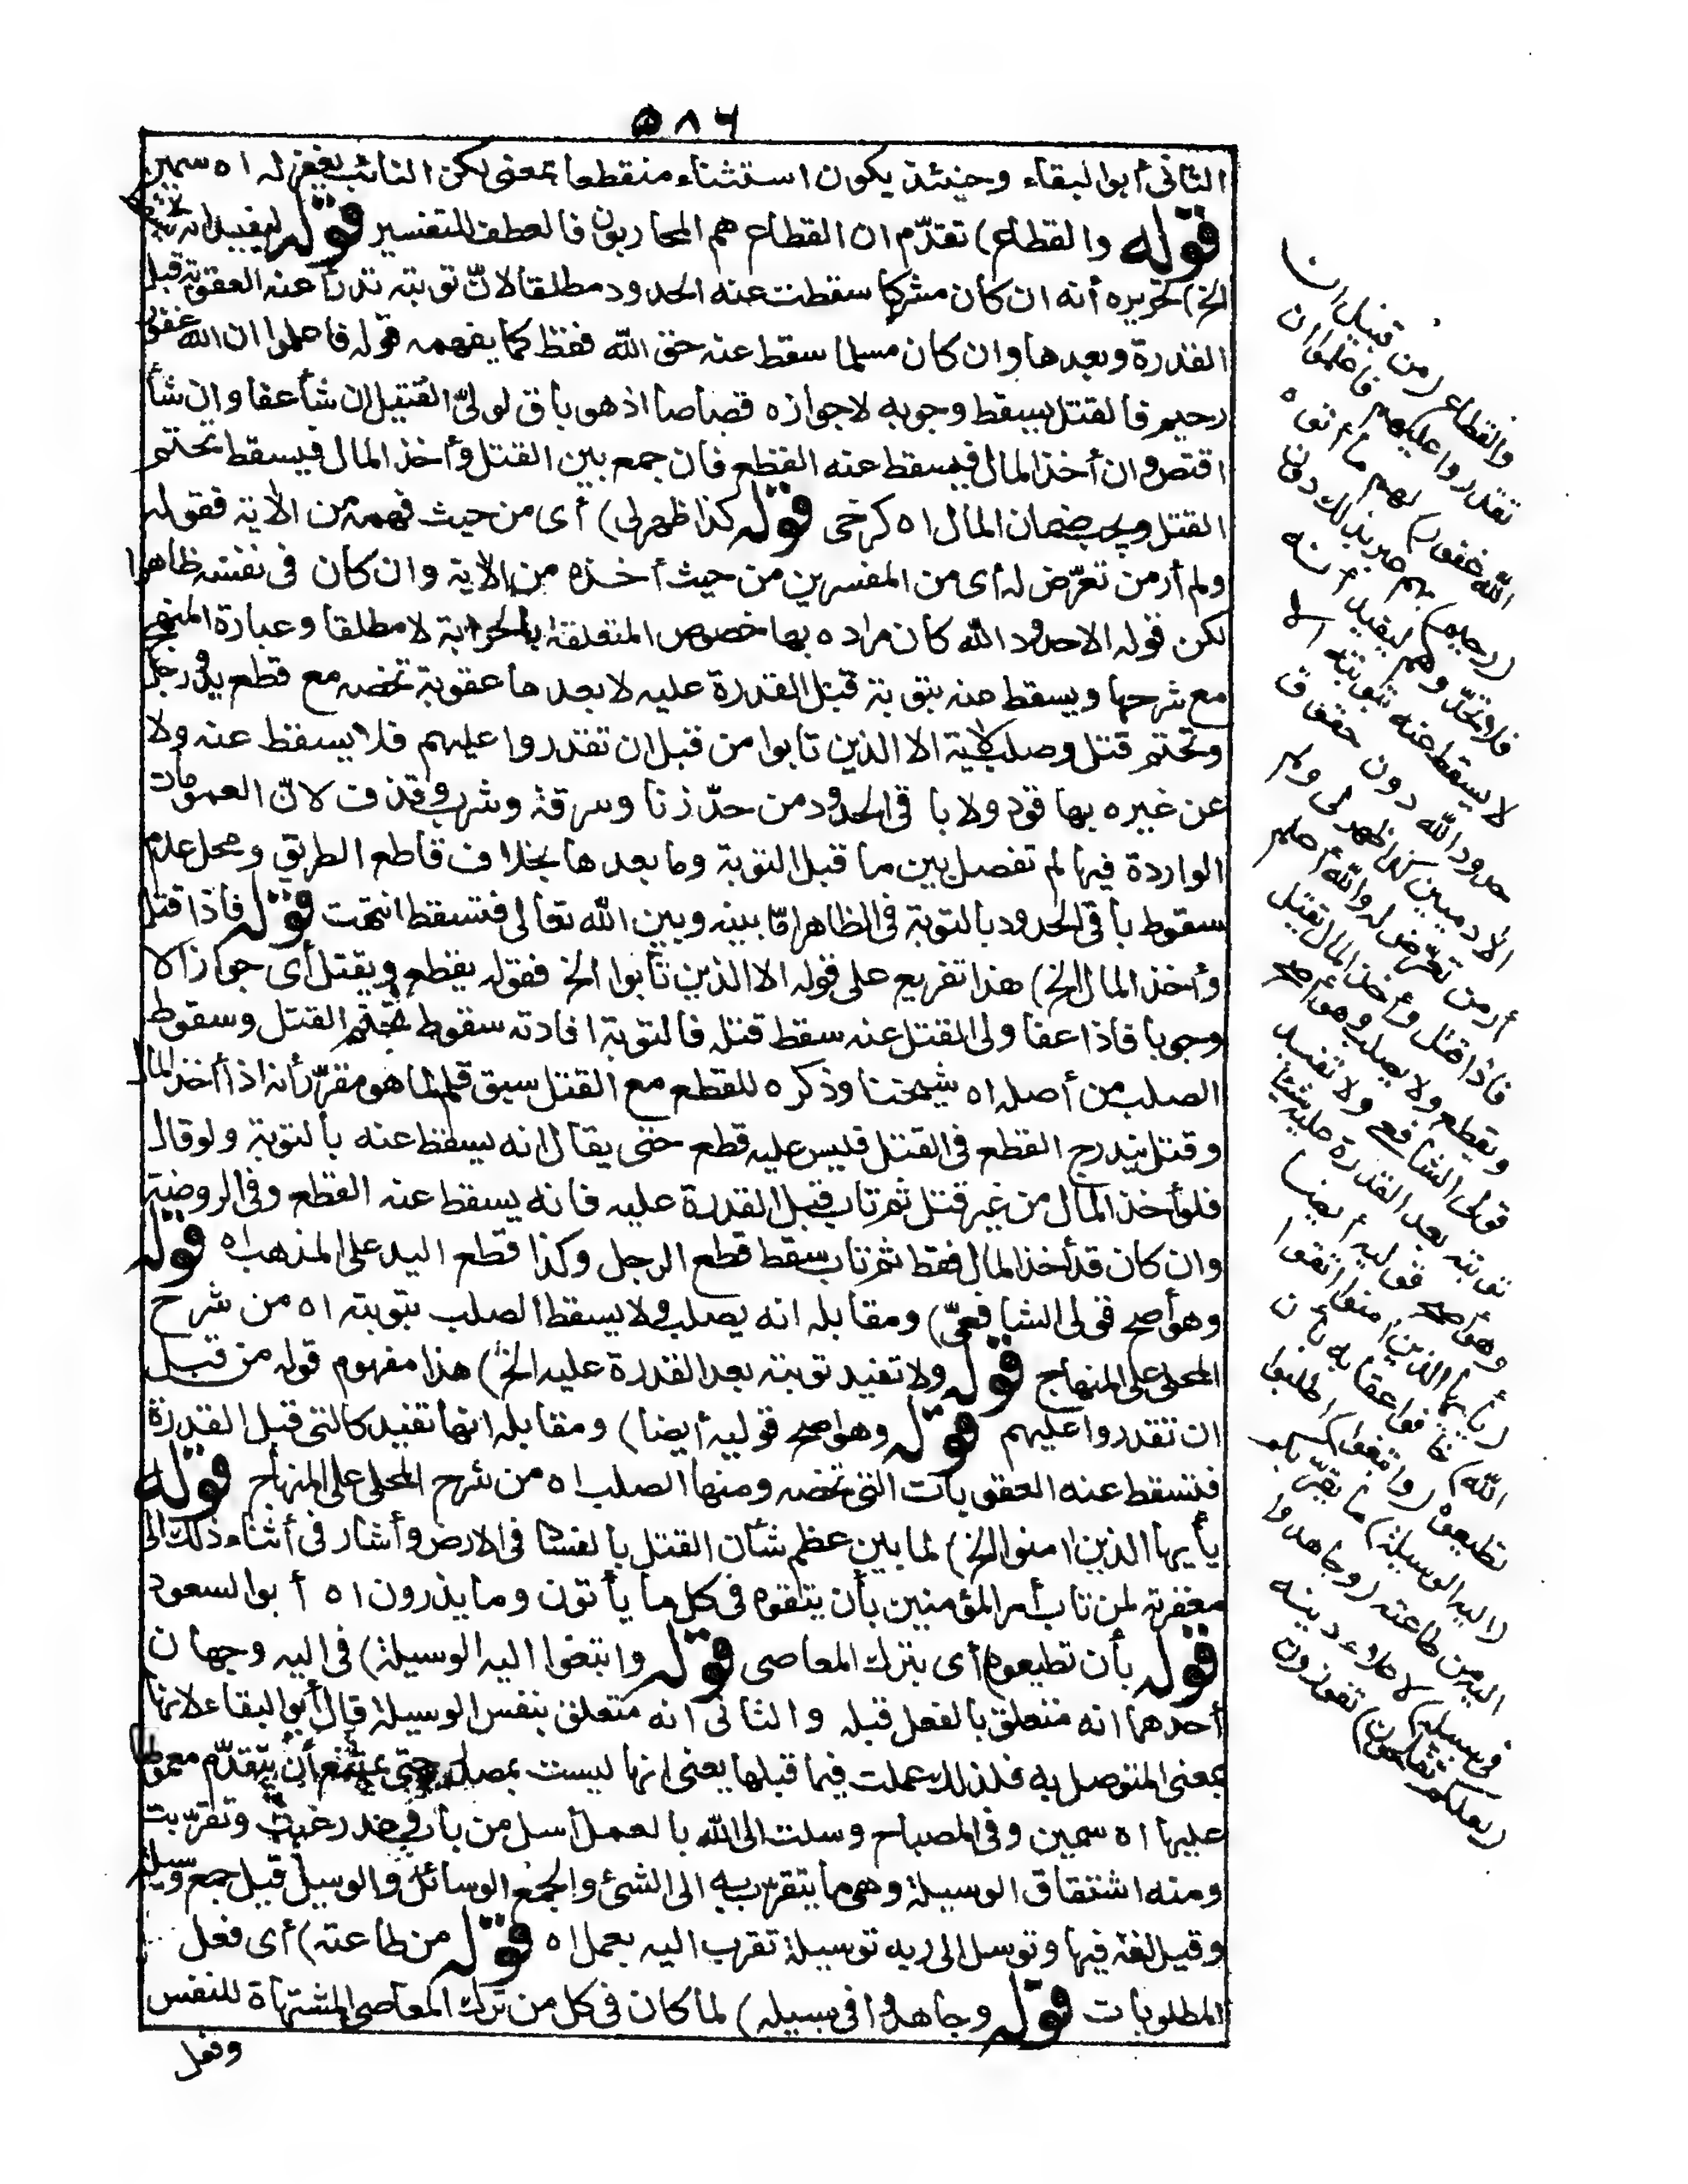 ٥٨٦
الثانى أبو البقاء وحينئذ يكون استثناء منقطعا بمعنى لكن التائب يغفر له اه سمين
قوله والقطاع) تقدّم ان القطاع هم المحاربون فالعطف للتفسير قوله ليفيد انه لا يسقط
الخ) تحريره أنه ان كان مشركا سقطت عنه الحدود مطلقا لانّ توبته تدرأ عنه العقوبة قبل
القدرة وبعدها وان كان مسلما سقط عنه حق الله فقط كما يفهمه قوله فاعلموا ان الله غفور
رحيم فالقتل يسقط وجوبه لا جوازه قصاصا اذ هو باق لولىّ القتيل ان شأ عفا وان شأ
اقتص وان أخذ المال فيسقط عنه القطع فان جمع بين القتل وأخذ المال فيسقط تحتم
القتل ويجب ضمان المال اه كرخى قوله كذا ظهر لى) أى من حيث فهمه من الآية فقوله
ولم أر من تعرّض له أى من المفسرين من حيث أخذه من الآية وان كان فى نفسه ظاهرا
لكن قوله الا حدود الله كان مراده بها خصوص المتعلقة بالحرابة لا مطلقا وعبارة المنهج
مع شرحها ويسقط عنه بتوبة قبل القدرة عليه لا بعدها عقوبة تخصه مع قطع يد ورجل
وتحتم قتل وصلب لآية الا الذين تابوا من قبل ان تقدروا عليهم فلا يسقط عنه ولا
عن غيره بها قود ولا باقى الحدود من حدّ زنا وسرقة وشرب وقذف لانّ العمومات
الواردة فيها لم تفصل بين ما قبل التوبة وما بعدها بخلاف قاطع الطريق ومحل عدم
سقوط باقى الحدود بالتوبة فى الظاهر امّا بينه وبين الله تعالى فتسقط انتهت قوله فاذا قتل
وأخذ المال الخ) هذا تفريع على قوله الا الذين تابوا الخ فقوله يقطع ويقتل أى جوازا لا
وجوبا فاذا عفا ولى القتل عنه سقط قتله فالتوبة افادته سقوط تحتم القتل وسقوط
الصلب من أصله اه شيخنا وذكره للقطع مع القتل سبق قلم لما هو مقرّر أنه اذا أخذ المال
وقتل يندرج القطع فى القتل فليس عليه قطع حتى يقال انه يسقط عنه بالتوبة ولو قال
فلو أخذ المال من غير قتل ثم تاب قبل القدرة عليه فانه يسقط عنه القطع وفى الروضة
وان كان قد أخذ المال فقط ثم تاب سقط قطع الرجل وكذا قطع اليد على المذهب اه قوله
وهو أصح قولى الشافعىّ) ومقابله انه يصلب ولا يسقط الصلب بتوبته اه من شرح
المحلى على المنهاج قوله ولا تفيد توبته بعد القدرة عليه الخ) هذا مفهوم قوله من قبل
ان تقدروا عليهم قوله وهو أصح قوليه أيضا) ومقابله انها تفيد كالتى قبل القدرة
فتسقط عنه العقوبات التى تخصه ومنها الصلب اه من شرح المحلى على المنهاج قوله
يأيها الذين امنوا الخ) لما بين عظم شأن القتل بالفساد فى الارض وأشار فى أثناء ذلك الى
مغفرته لمن تاب أمر المؤمنين بأن يتقوه فى كل ما يأتون وما يذرون اه أبو السعود
قوله بأن تطيعوه) أى بترك المعاصى قوله وابتغوا اليه الوسيلة) فى اليه وجهان
أحدهما انه متعلق بالفعل قبله والثانى انه متعلق بنفس الوسيلة قال أبو البقاء لانها
بمعنى المتوصل به فلذلك عملت فيما قبلها يعنى انها ليست بمصدر حتى يمتنع أن يتقدّم معمولها
عليها اه سمين وفى المصباح وسلت الى الله بالعمل أسل من باب وعد رغبت وتقرّبت
ومنه اشتقاق الوسيلة وهى ما يتقرّب به الى الشئ والجمع الوسائل والوسيل قيل جمع وسيلة
وقيل لغة فيها وتوسل الى ربه توسيلة تقرب اليه بعمل اه قوله من طاعته) أى فعل
المطلوبات قوله وجاهدوا فى سبيله) لما كان فى كل من ترك المعاصى المشتهاة للنفس
وفعل
والقطاع (من قبل ان
تقدروا عليهم فاعلموا ان
الله غفور) لهم ما أتوه
(رحيم) بهم عبر بذلك دون
فلا تحدّوهم ليفيد أنه
لا يسقط عنه بتوبته الا
حدود الله دون حقوق
الآدميين كذا ظهر لى ولم
أر من تعرّض له والله أعلم
فاذا قتل وأخذ المال يقتل
ويقطع ولا يصلب وهو أصح
قولى الشافعى ولا تفيد
توبته بعد القدرة عليه شيئا
وهو أصح قوليه أيضا
(يأيها الذين آمنوا اتقوا
الله) خافوا عقابه بأن
تطيعوه (وابتغوا) اطلبوا
(اليه الوسيلة) ما يقرّبكم
اليه من طاعته (وجاهدوا
فى سبيله) لاعلاء دينه
(لعلكم تفلحون) تفوزون